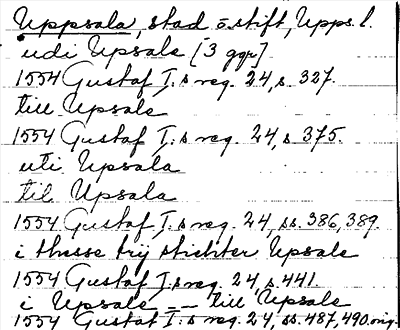 Uppsala, stad o. stift, Upps. l.
udi Upsale [3 ggr]
1554 Gustaf I:s reg. 24, s. 327.
till Upsale
1554 Gustaf I:s reg. 24, s. 375.
uti Upsala
til Upsala
1554 Gustaf I:s reg. 24, ss. 386, 389.
i thesse trij stichter Upsale
1554 Gustaf I:s reg. 24, s. 441.
i Upsale — — till Upsale
1554 Gustaf I:s reg. 24, ss. 487, 490 orig.